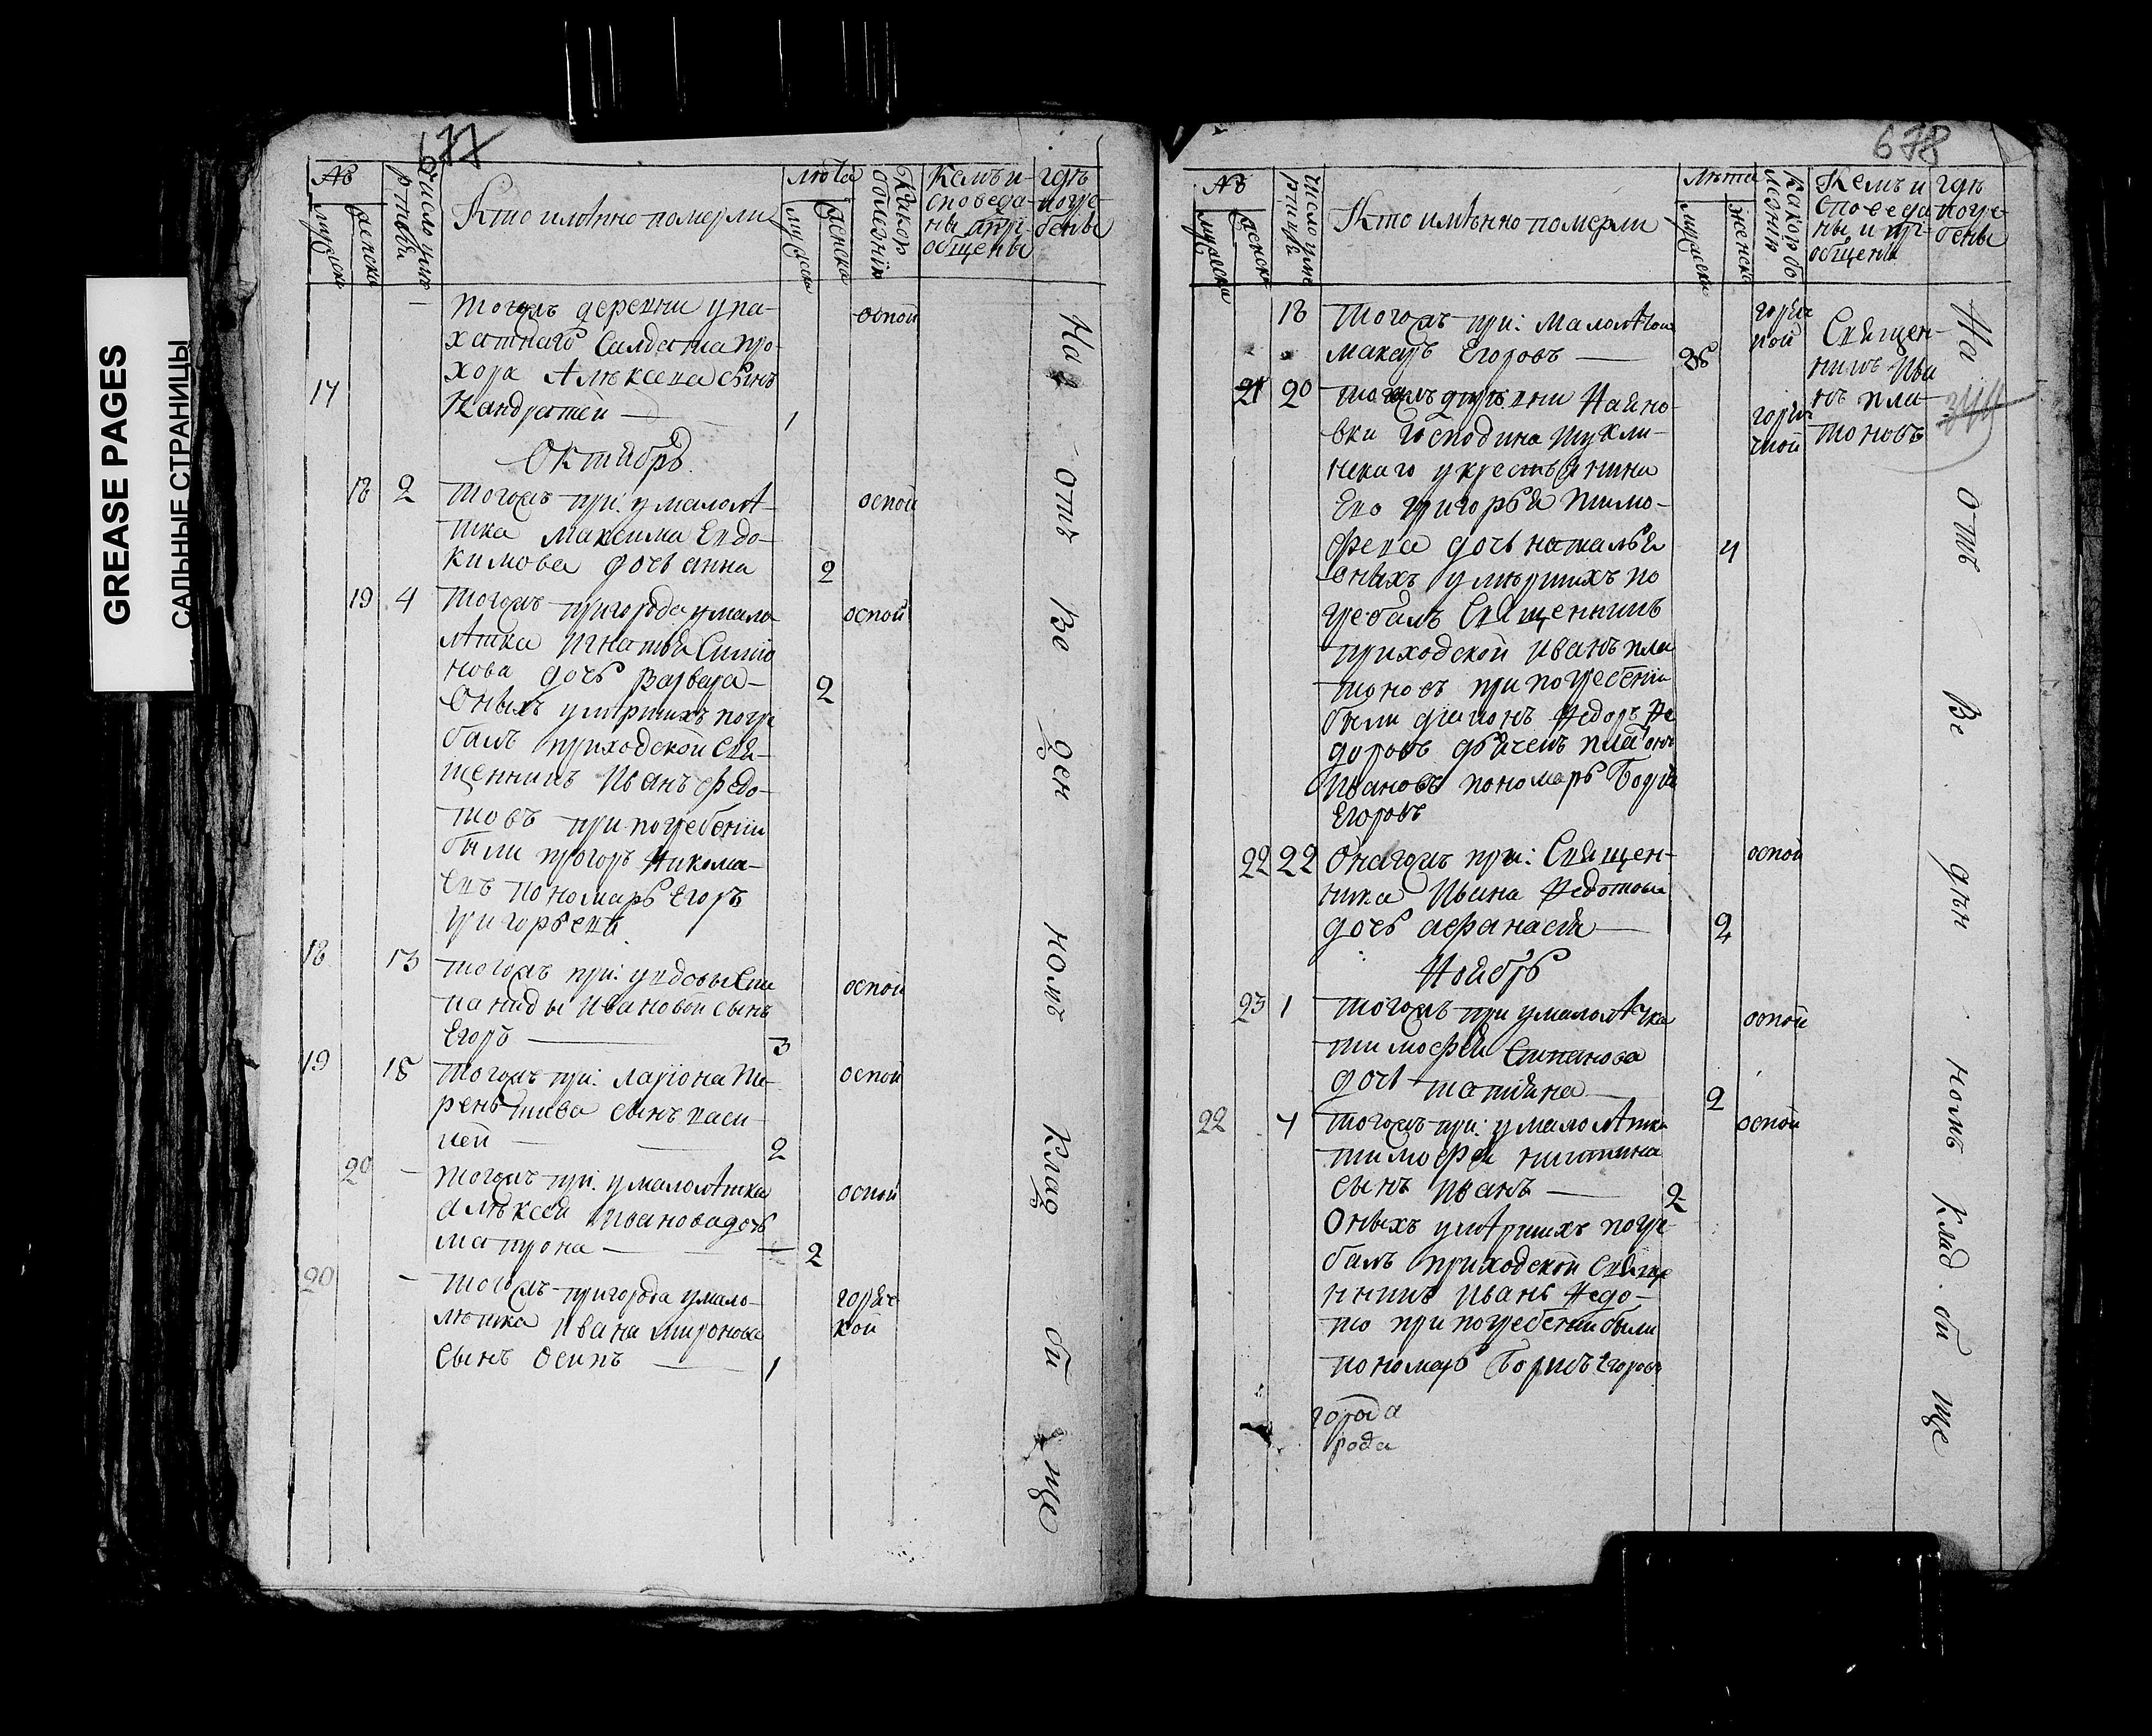 GREASE PAGES
САЛЬНЫЕ СТРАНИЦЫ
677
№
мужеска
женска
Число
Кто имѣнно померли
лѣта
мужеска
женска
Какою
болезнію
Кемъ и
споведа
ны и при
общены
гдѣ
погре
бены
тогожъ деревни у па
хатнаго салдата про
хора Алѣксеева сынъ
17 Кандратей — 1
оспой
Октябрь
18 2 тогожъ при: у малолѣ
тка Максима Евдо
кимова дочь анна 2
оспой
19 4 тогожъ пригорода у мало
лѣтка Игнатья Симіо
нова дочь Варвара — 2
оспой
Оныхъ умѣршихъ погре
балъ приходской свя
щенникъ Иванъ Федо
товъ при погребеніи
были Никола
евъ пономарь Егоръ
григорьевъ
18 13 тогожъ при: у вдовы Сти
паниды Ивановой сынъ
Егоръ — 3
оспой
19 18 тогожъ при: ларіона Те
рентьива сынъ васи
лей — 2
оспой
20 — тогожъ при: у малолѣтка
алѣксея Иванова дочь
матрона — 2
оспой
20 — тогожъ пригорода у мало
лѣтка Ивана миронова
сынъ Осипъ — 1
горяч
кой
На отъ ве ден номъ клад би ще
678
№
мужеска
женска
Число
Кто имѣнно помѣрли
лѣта
мужеска
женска
Какою бо
лезнію
Кемъ и
споведа
ны и при
общены
гдѣ
погре
бены
18 тогожъ при: малолѣтокъ
макаръ Егоровъ —
горяч
кой
Священ
никъ Ива
нъ пла
тоновъ
21 20 тогожъ деревни
вки господина
нскаго у крестьянина
Ево григорья тимо
феева дочь наталья 4
горя
чкой
оныхъ умѣршихъ по
гребалъ Священникъ
приходской иванъ пла
тоновъ при погребеніи
были діаконъ Федоръ Фе
доровъ дьячекъ платонъ
Ивановъ пономарь
Егоровъ
22 22 Онагожъ при: Священ
ника Ивана Федотова
дочь афанасія — 2
оспой
Ноябрь
23 1 тогожъ при у малолѣтка
тимофея Стипанова
дочь татіяна — 2
оспой
22 4 тогожъ при: у малолѣтка
тимофея никитина
сынъ Иванъ — 2
оспой
Оныхъ умѣршихъ погре
балъ приходской Свяще
нникъ Иванъ Федо
то при погребеніи были
пономарь Борисъ Егоровъ
города
рода
На отъ ве дѣн номъ клад би ще